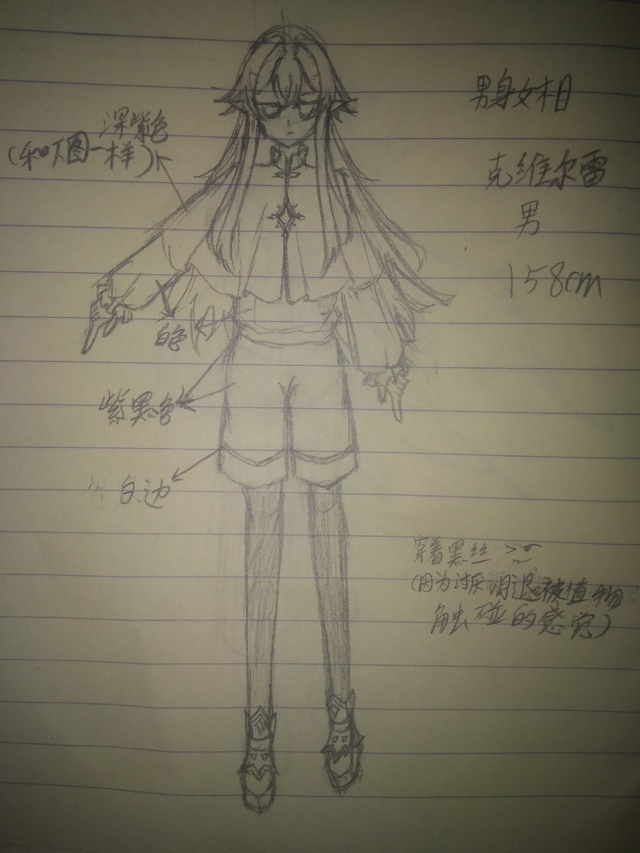 男身女相
克维尔雷
男
158cm
深紫色
(和下图一样)
白色
紫黑色
白边
穿着黑丝
(因为讨厌 被植物
触碰的感觉)